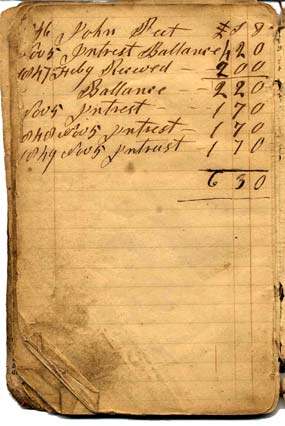 46 John Peet £ S 8
Nov 5 Intrest Ballance 4 2 0
1847 Feby Recived - 2 0 0
Ballance - 2 2 0
Nov 5 Intrest - 1 7 0
1848 Nov 5 Intrest - 1 7 0
1849 Nov 5 Intrust 1 7 0
6 3 0